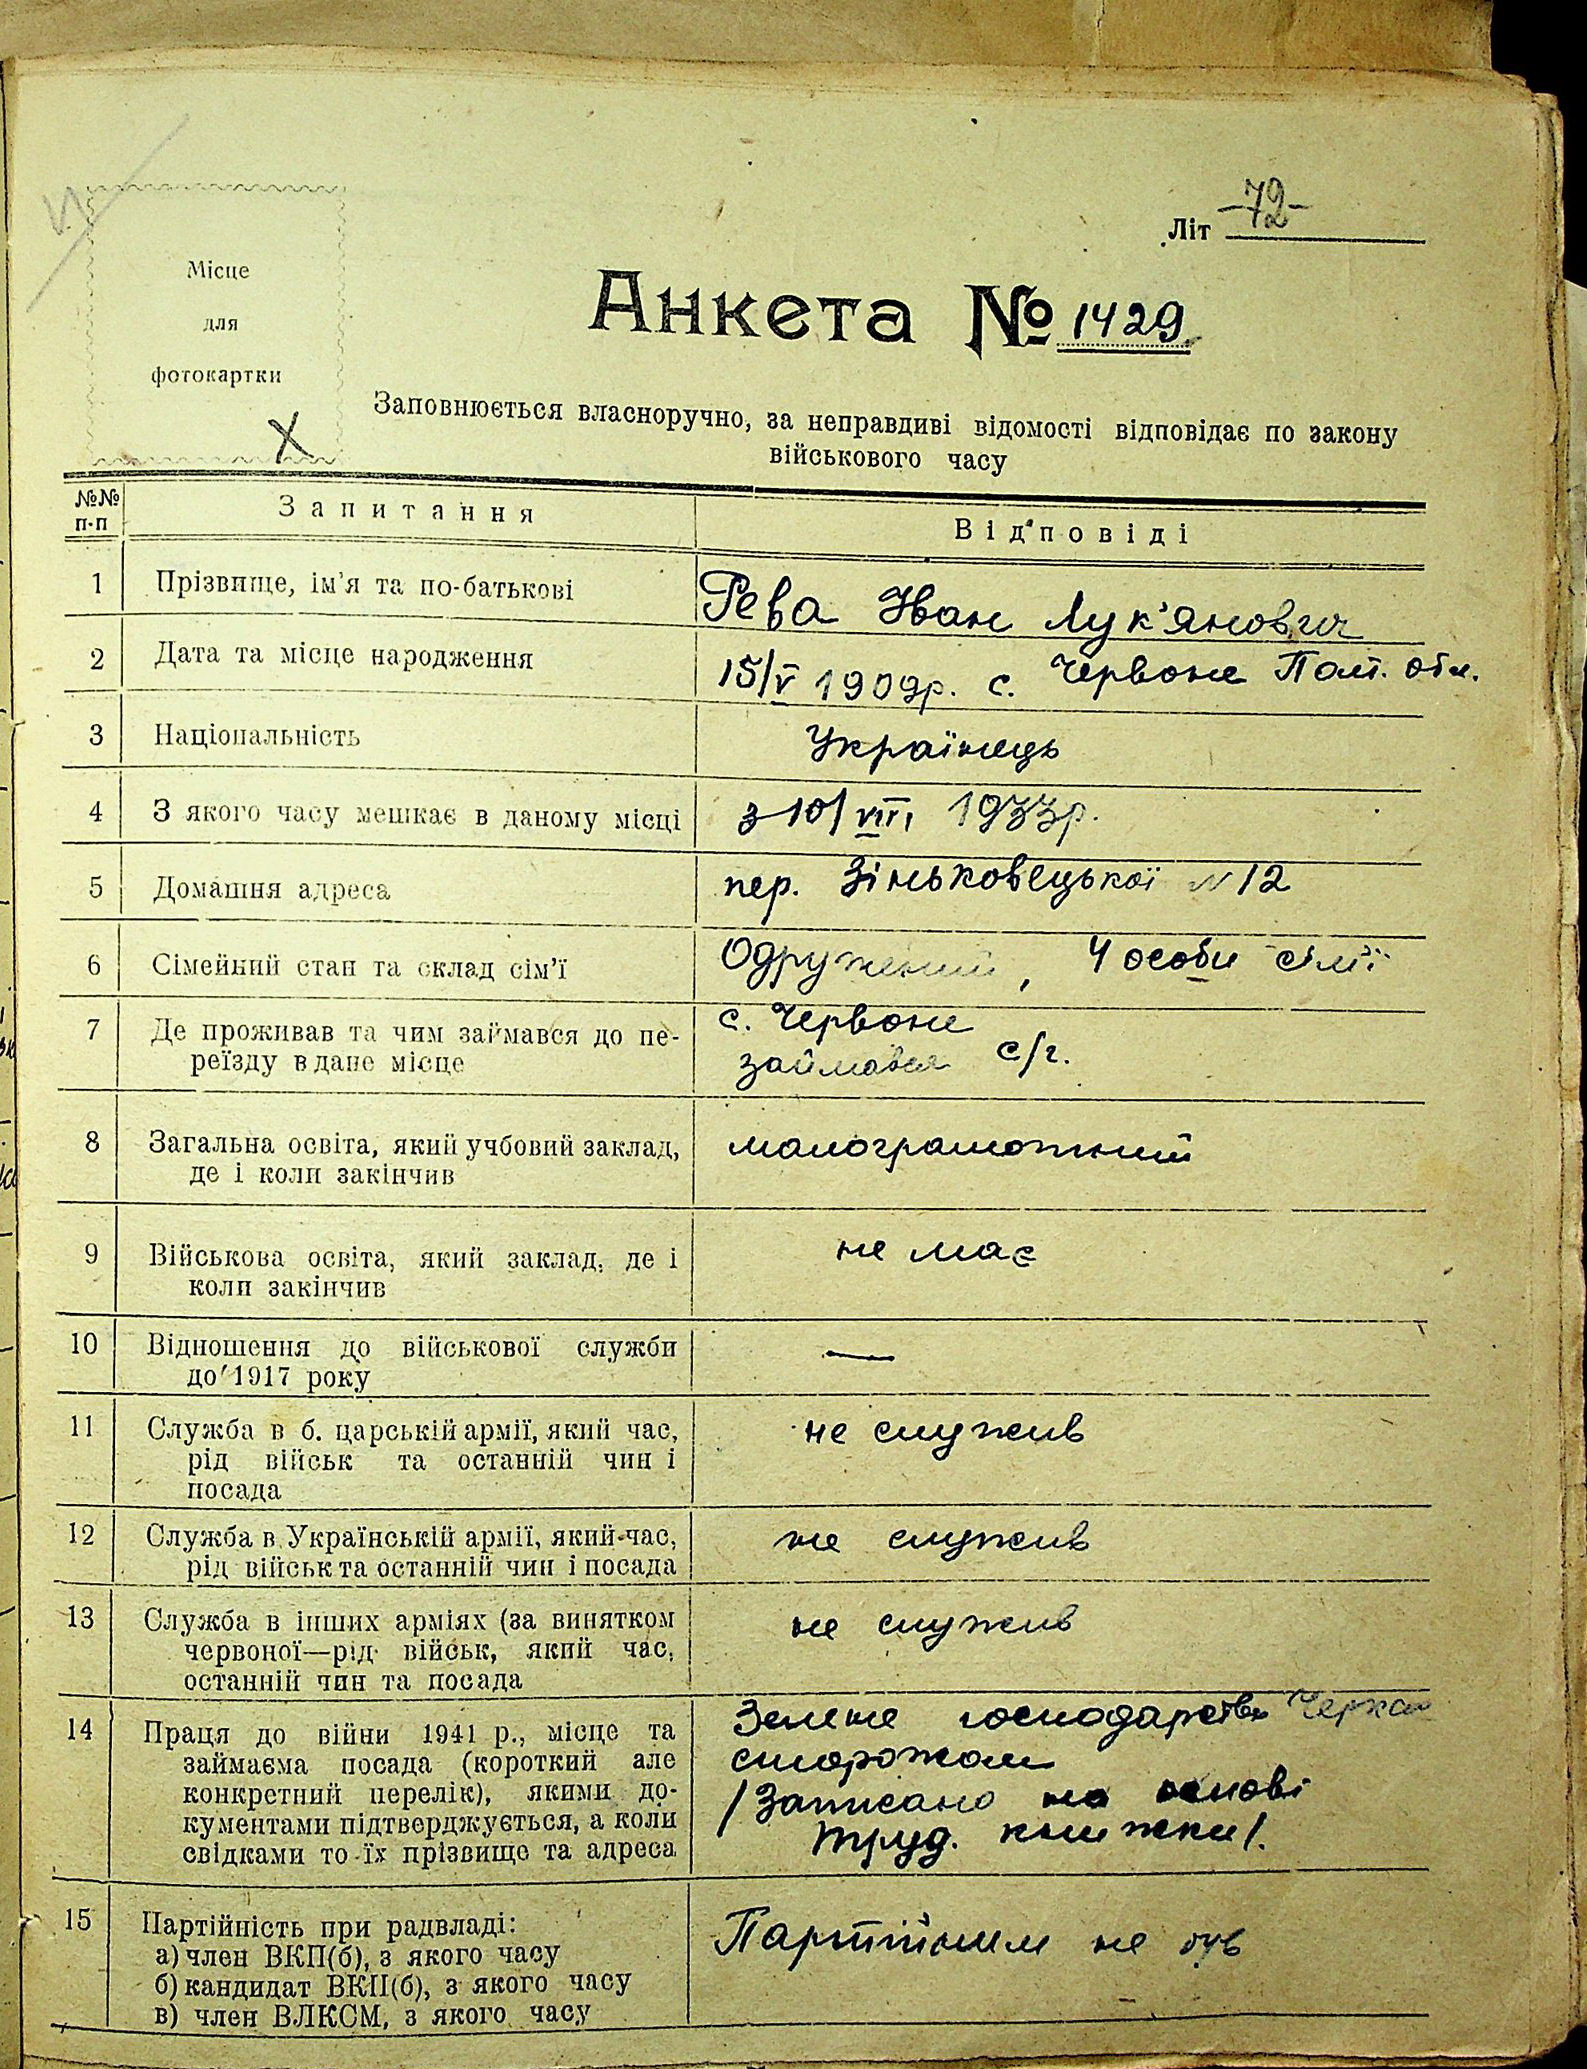 Літ -72-
Місце
для
фотокартки
Анкета № 1429
Заповнюється власноручно, за неправдиві відомості відповідає по закону
військового часу
№№ п-п Запитання Відповіді
1 Прізвище, ім'я та по-батькові Рева Іван Лук'янович
2 Дата та місце народження 15/V 1909р. с. Червоне Полт. обл.
3 Національність Українець
4 З якого часу мешкає в даному місці з 10/VIII 1933р.
5 Домашня адреса пер. Зіньковецької №12
6 Сімейний стан та склад сім'ї Одружений, 4 особи сім'ї
7 Де проживав та чим займався до пе- с. Червоне
реїзду в дане місце займався с/г.
8 Загальна освіта, який учбовий заклад, малограмотний
де і коли закінчив
9 Військова освіта, який заклад, де і не має
коли закінчив
10 Відношення до військової служби —
до 1917 року
11 Служба в б. царській армії, який час, не служив
рід військ та останній чин і
посада
12 Служба в Українській армії, який час, не служив
рід військ та останній чин і посада
13 Служба в інших арміях (за винятком не служив
червоної—рід військ, який час,
останній чин та посада
14 Праця до війни 1941 р., місце та Зелене господарство
займаєма посада (короткий але сторожом
конкретний перелік), якими до- /Записано на основі
кументами підтверджується, а коли труд. книжки/.
свідками то їх прізвище та адреса
15 Партійність при радвладі: Партійним не був
а) член ВКП(б), з якого часу
б) кандидат ВКП(б), з якого часу
в) член ВЛКСМ, з якого часу